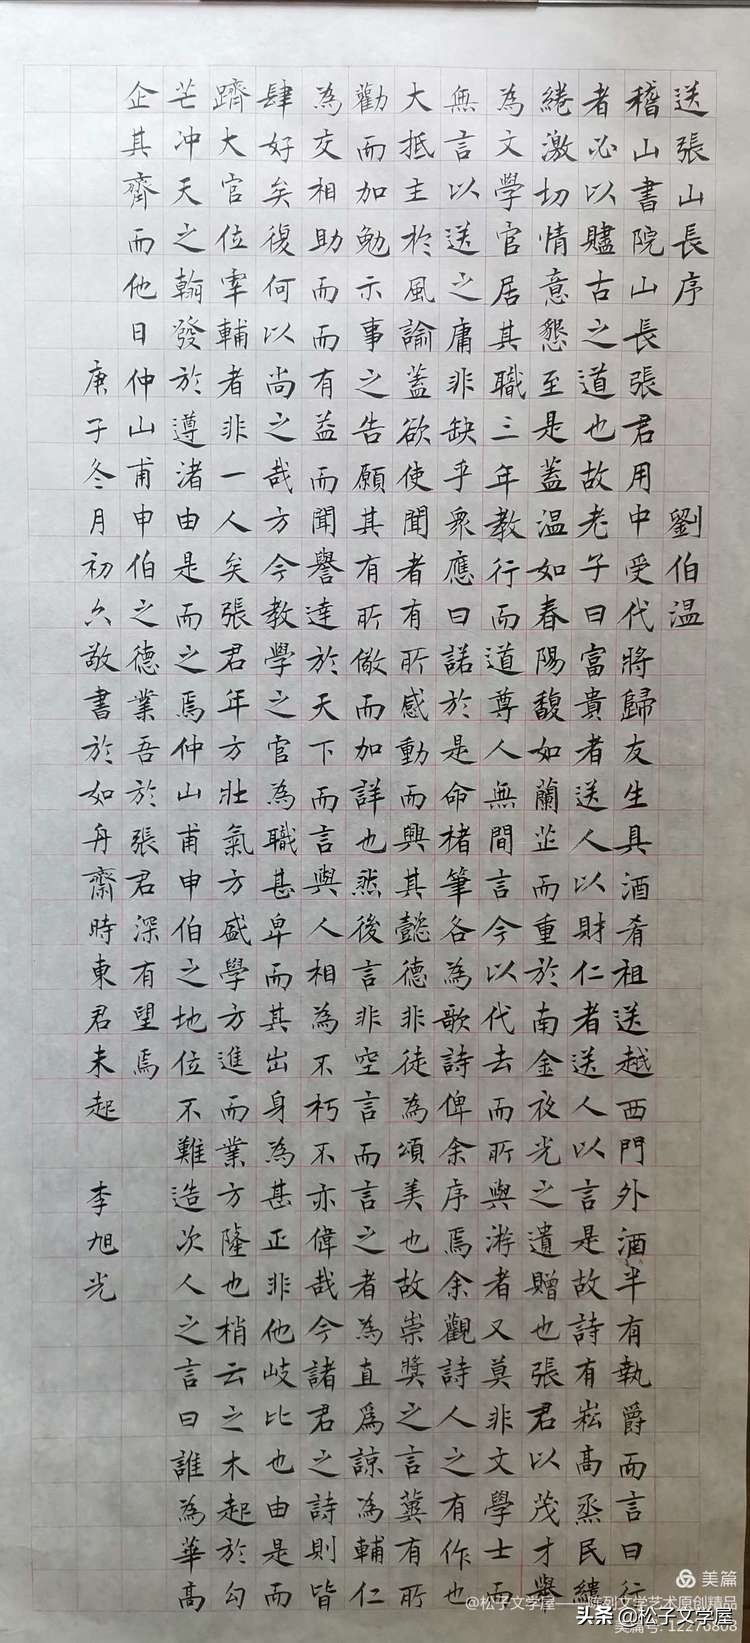 送張山長序　劉伯温
稽山書院山長張君用中受代將歸友生具酒肴祖送越西門外酒半有執爵而言曰行
者必以贐古之道也故老子曰富貴者送人以財仁者送人以言是故詩有崧高烝民繾
綣激切情意懇至是蓋温如春陽馥如蘭芷而重於南金夜光之遺贈也張君以茂才舉
為文學官居其職三年教行而道尊人無間言今以代去而所與游者又莫非文學士而
無言以送之庸非缺乎衆應曰諾於是命楮筆各為歌詩俾余序焉余觀詩人之有作也
大抵主於風諭蓋欲使聞者有所感動而興其懿德非徒為頌美也故崇獎之言冀有所
勸而加勉示事之告願其有所儆而加詳也然後言非空言而言之者為直為諒為輔仁
為交相助而而有益而聞譽達於天下而言與人相為不朽不亦偉哉今諸君之詩則皆
肆好矣復何以尚之哉方今教學之官為職甚卑而其出身為甚正非他岐比也由是而
躋大官位宰輔者非一人矣張君年方壯氣方盛學方進而業方隆也梢云之木起於勾
芒冲天之翰發於遵渚由是而之焉仲山甫申伯之地位不難造次人之言曰誰為華高
企其齊而他日仲山甫申伯之德業吾於張君深有望焉
庚子冬月初六敬書於如舟齋時東君未起　李旭光
美篇
@松子文学屋——阵列文学艺术原创精品
头条 @松子文学屋
美篇号: 12276808